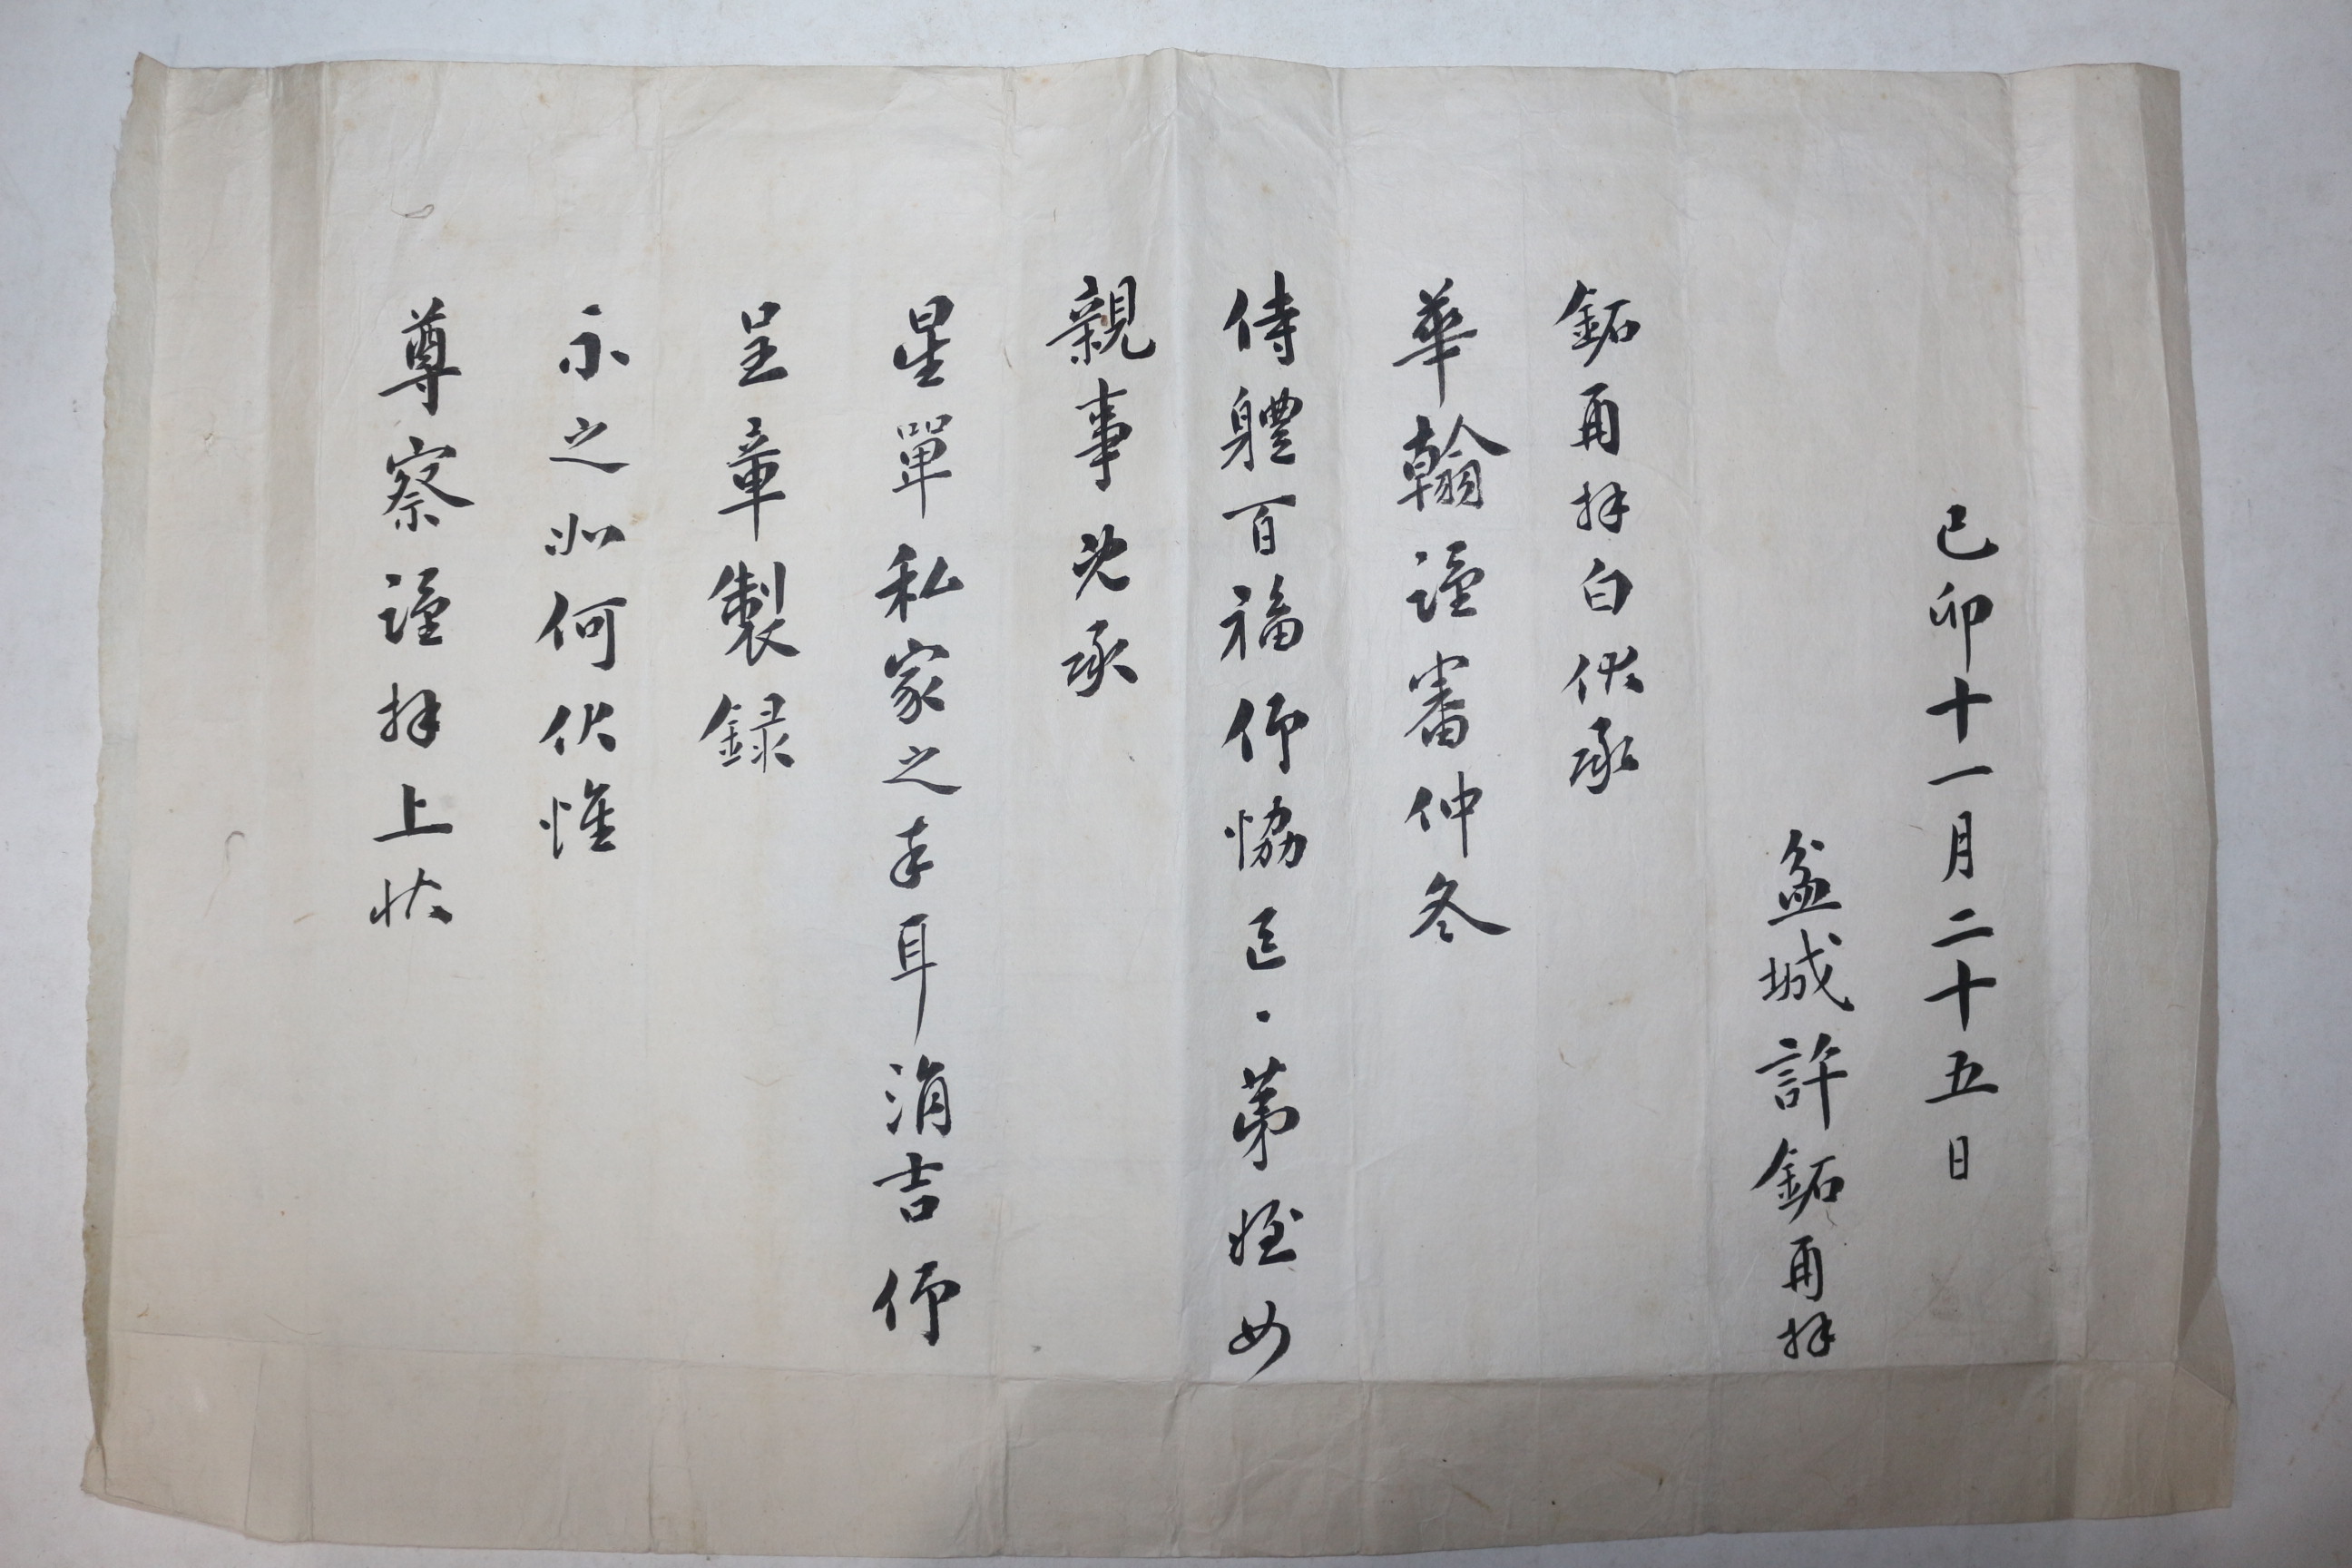 己卯十一月二十五日
盆城許鉐再拜
鉐再拜白伏承
華翰謹審仲冬
侍軆百福仰恊区〻第姪女
親事既承
星單私家之幸耳涓吉仰
呈章製録
示之如何伏惟
尊察謹拜上狀